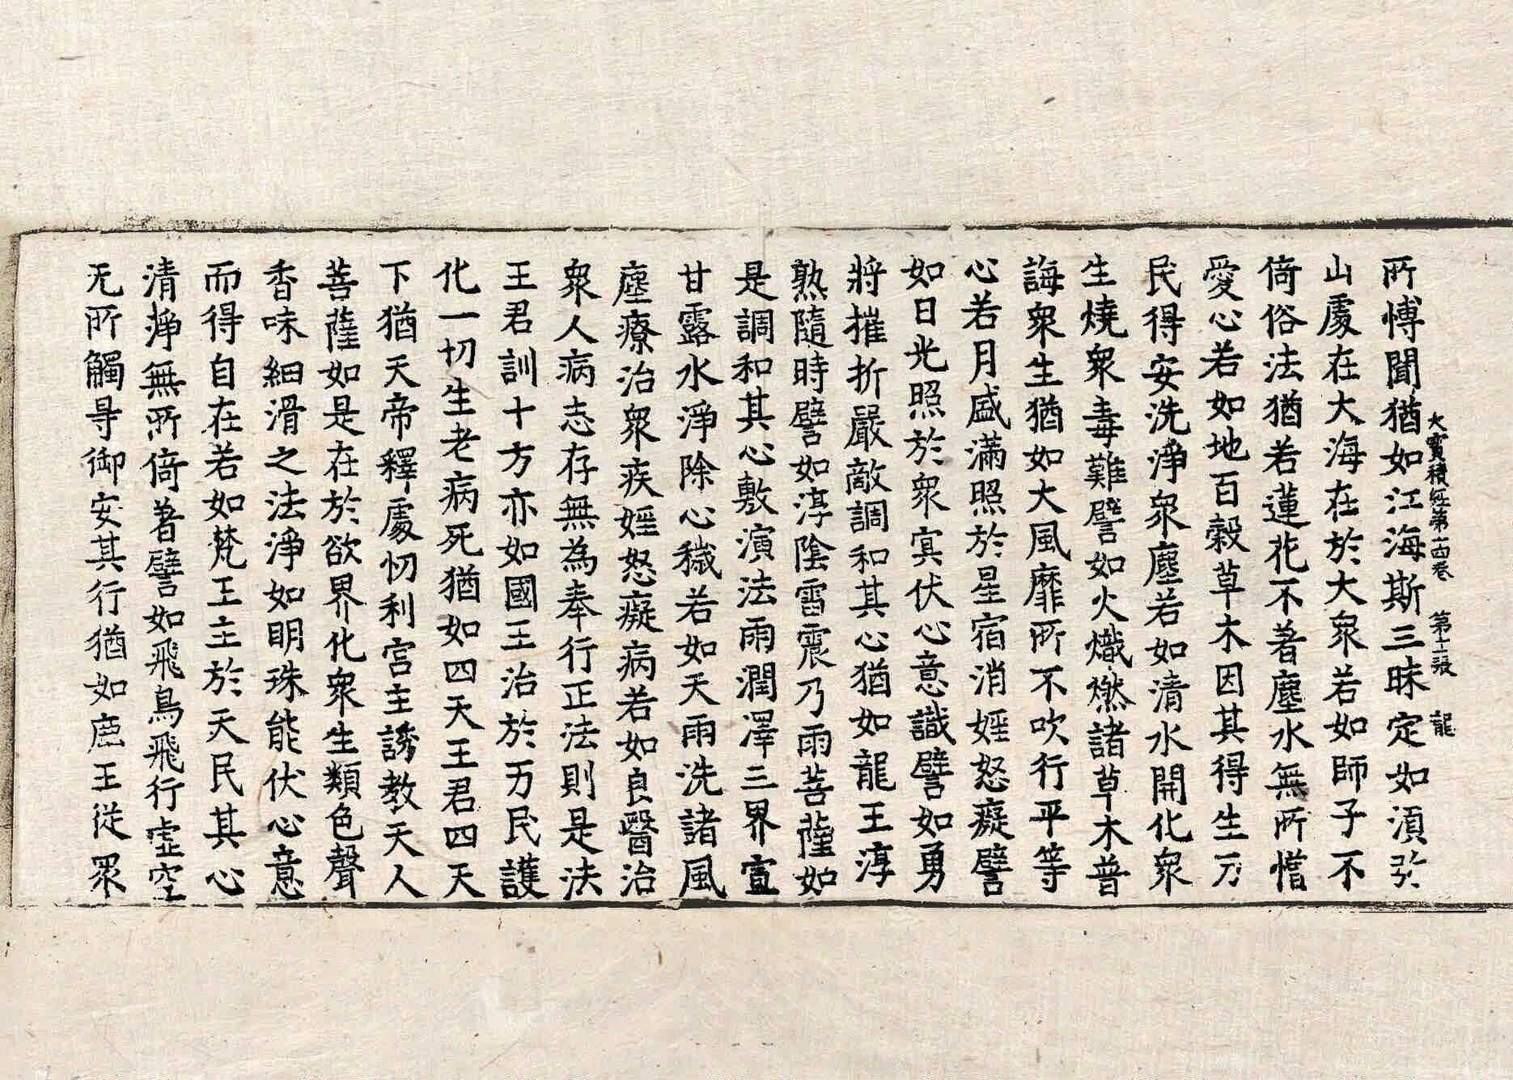 大寶積經第十四卷　第十二張　龍
所愽聞猶如江海斯三昧定如湏弥
山䖏在大海在於大衆若如師子不
倚俗法猶若蓮花不著塵水無所憎
愛心若如地百穀草木因其得生万
民得安洗淨衆塵若如清水開化衆
生燒衆毒難譬如火熾燃諸草木普
誨衆生猶如大風靡所不吹行平等
心若月盛滿照於星宿消婬怒癡譬
如日光照於衆㝠伏心意識譬如勇
將摧折嚴敵調和其心猶如龍王淳
熟隨時譬如淳陰雷震乃雨菩薩如
是調和其心敷演法雨潤澤三界宣
甘露水淨除心穢若如天雨洗諸風
塵療治衆疾婬怒癡病若如良醫治
衆人病志存無為奉行正法則是法
王君訓十方亦如國王治於万民護
化一切生老病死猶如四天王君四天
下猶天帝釋䖏忉利宮主誘教天人
菩薩如是在於欲界化衆生類色聲
香味細滑之法淨如明珠能伏心意
而得自在若如梵王主於天民其心
清淨無所倚著譬如飛鳥飛行虛空
无所觸㝵御安其行猶如鹿王從衆